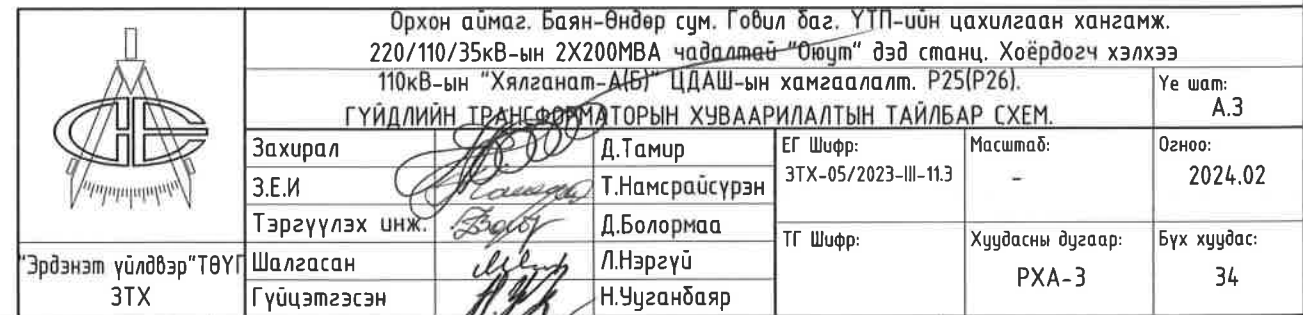 Орхон аймаг. Баян-Өндөр сум. Говил баг. ҮТП-ийн цахилгаан хангамж.
220/110/35кВ-ын 2Х200МВА чадалтай "Оюут" дэд станц. Хоёрдогч хэлхээ
110кВ-ын "Хялганат-А(Б)" ЦДАШ-ын хамгаалалт. Р25(Р26).
ГҮЙДЛИЙН ТРАНСФОРМАТОРЫН ХУВААРИЛАЛТЫН ТАЙЛБАР СХЕМ.
Үе шат:
А.З
Захирал Д.Тамир
З.Е.И Т.Намсрайсүрэн
Тэргүүлэх инж. Д.Болормаа
Шалгасан Л.Нэргүй
Гүйцэтгэсэн Н.Ууганбаяр
ЕГ Шифр:
ЗТХ-05/2023-III-11.3
Масштаб:
-
Огноо:
2024.02
ТГ Шифр:
Хуудасны дугаар:
РХА-3
Бүх хуудас:
34
"Эрдэнэт үйлдвэр"ТӨҮГ
ЗТХ